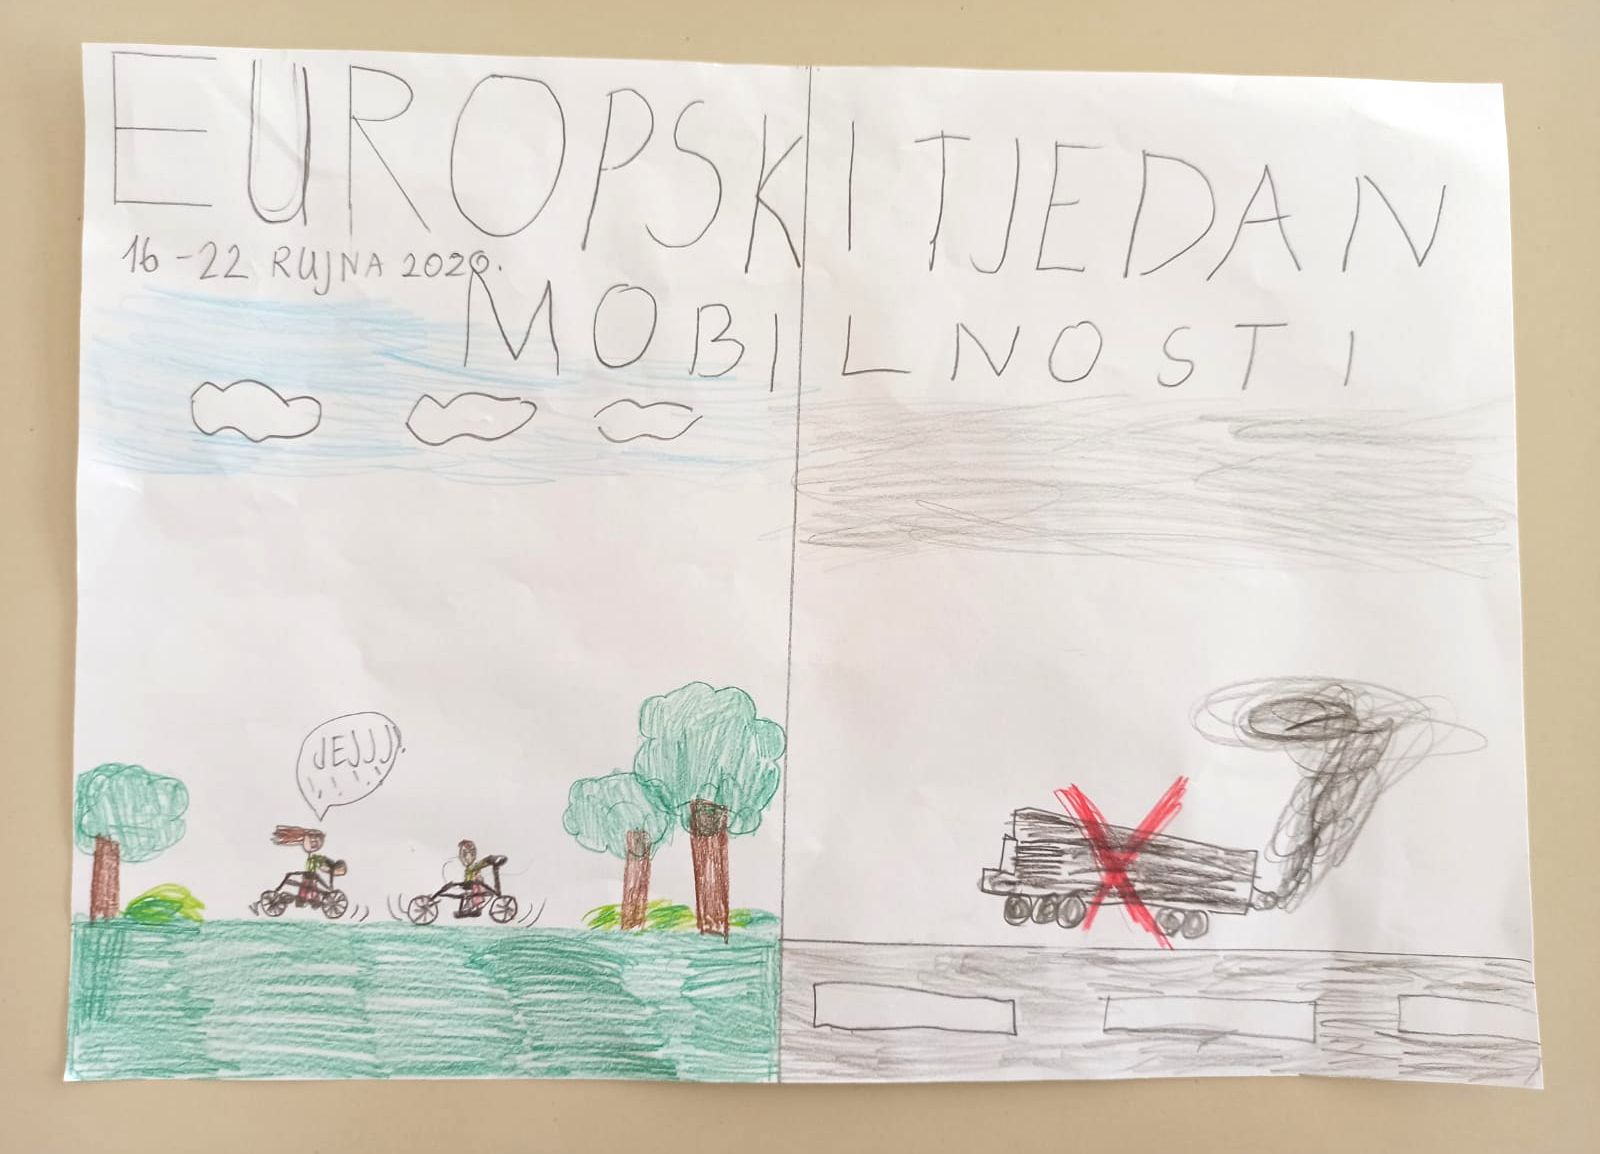 EUROPSKI TJEDAN
16-22 RUJNA 2020.
MOBILNOSTI
JEJJJ!